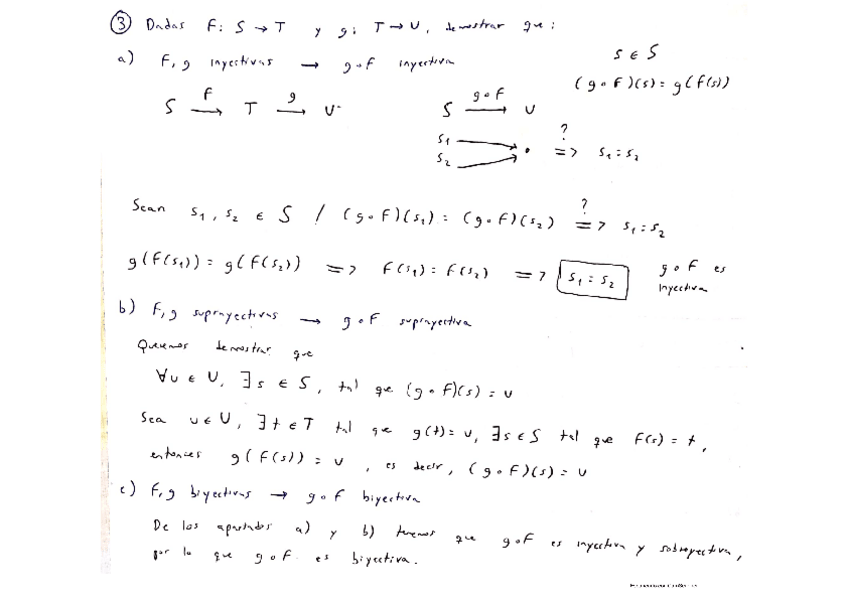 ③ Dadas f: S → T y g: T → U, demostrar que:
a) f, g inyectivas → g∘f inyectiva
s ∈ S
(g∘f)(s) = g(f(s))
S →f T →g U
S →g∘f U
s₁
s₂ ?⇒ s₁ = s₂
Sean s₁, s₂ ∈ S / (g∘f)(s₁) = (g∘f)(s₂) ?⇒ s₁ = s₂
g(f(s₁)) = g(f(s₂)) ⇒ f(s₁) = f(s₂) ⇒ s₁ = s₂ g∘f es
inyectiva
b) f, g suprayectivas → g∘f suprayectiva
Queremos demostrar que
∀u ∈ U, ∃s ∈ S, tal que (g∘f)(s) = u
Sea u ∈ U, ∃t ∈ T tal que g(t) = u, ∃s ∈ S tal que f(s) = t,
entonces g(f(s)) = u, es decir, (g∘f)(s) = u
c) f, g biyectivas → g∘f biyectiva
De los apartados a) y b) tenemos que g∘f es inyectiva y sobreyectiva,
por lo que g∘f es biyectiva.